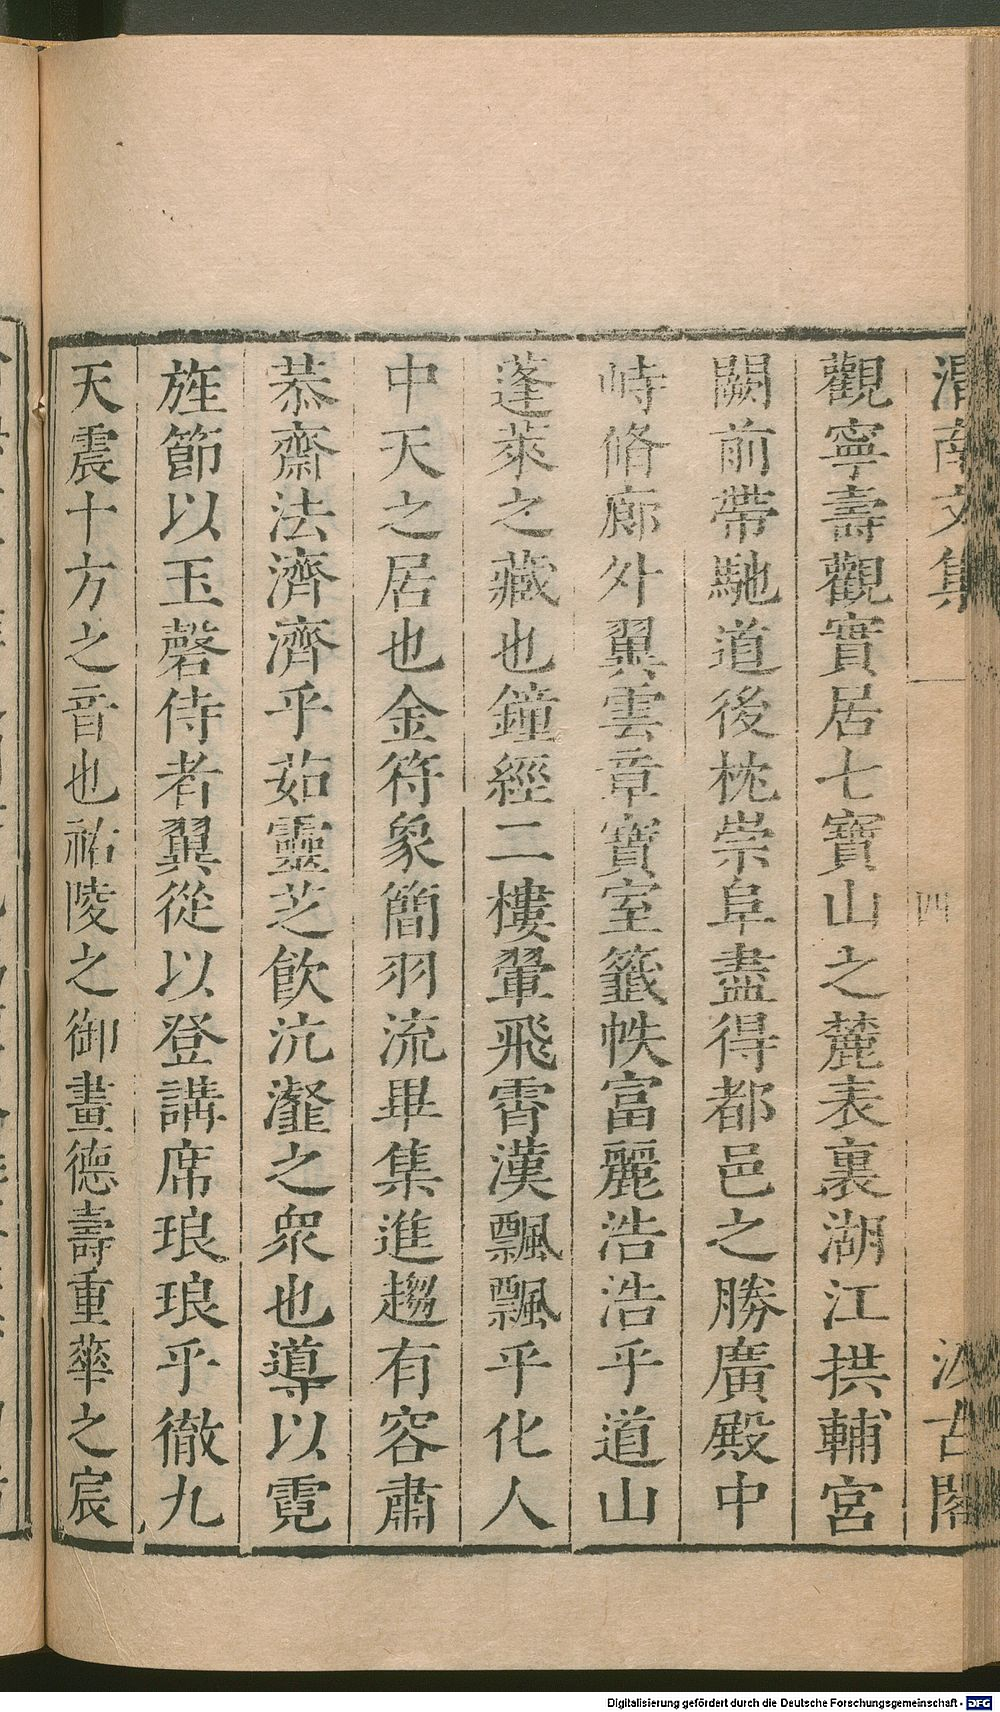 渭南文集 四 汲古閣
觀寧壽觀實居七寶山之麓表裏湖江拱輔宮
闕前帶馳道後枕崇阜盡得都邑之勝廣殿中
峙脩廊外翼雲章寶室籤帙富麗浩浩乎道山
蓬萊之藏也鐘經二樓翬飛霄漢飄飄乎化人
中天之居也金符象簡羽流畢集進趨有容肅
恭齋法濟濟乎茹靈芝飲沆瀣之衆也導以霓
旌節以玉磬侍者翼從以登講席琅琅乎徹九
天震十方之音也祐陵之御畫德壽重華之宸
Digitalisierung gefördert durch die Deutsche Forschungsgemeinschaft - DFG